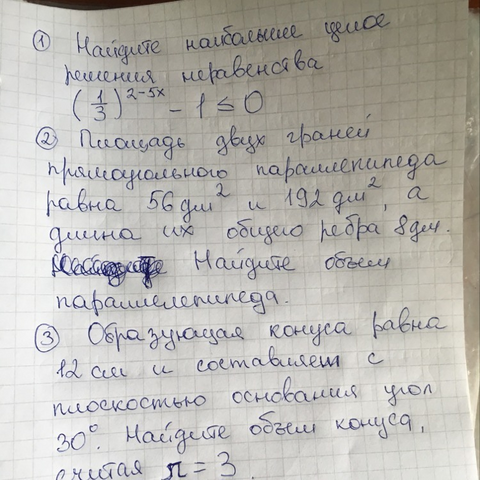 ① Найдите наибольшие целое
решения неравенства
(1/3)^2-5x - 1 ≤ 0
② Площадь двух граней
прямоугольного параллепипеда
равна 56 дм² и 192 дм², а
длина их общего ребра 8 дм.
Найдите объем
параллелепипеда.
③ Образующая конуса равна
12 см и составляет с
плоскостью основания угол
30°. Найдите объем конуса,
считая π = 3.